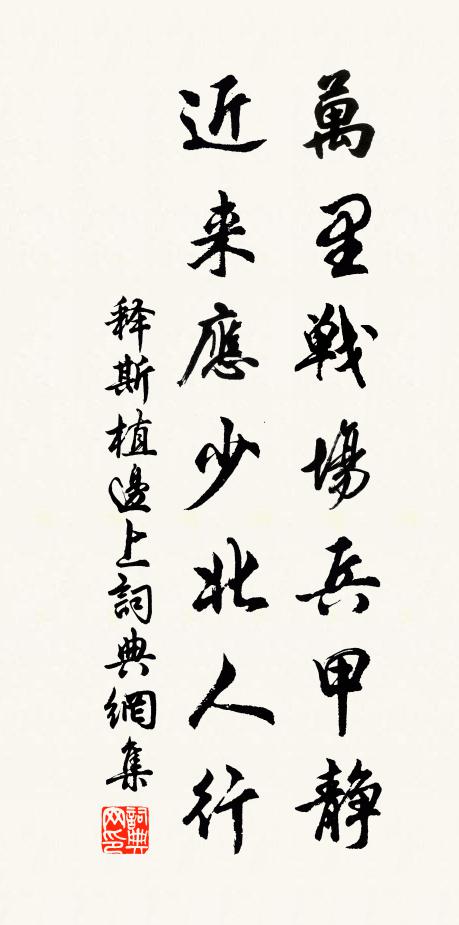 萬里戰場兵甲静
近来應少北人行
释斯植邊上詞典網集
詞典网印